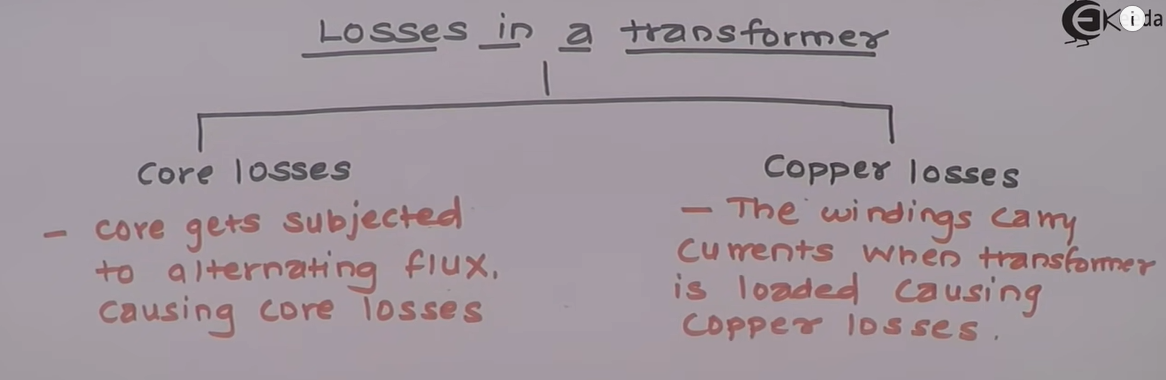 Losses in a transformer
Core losses
- core gets subjected
to alternating flux,
causing core losses
Copper losses
- The windings carry
currents when transformer
is loaded causing
copper losses.